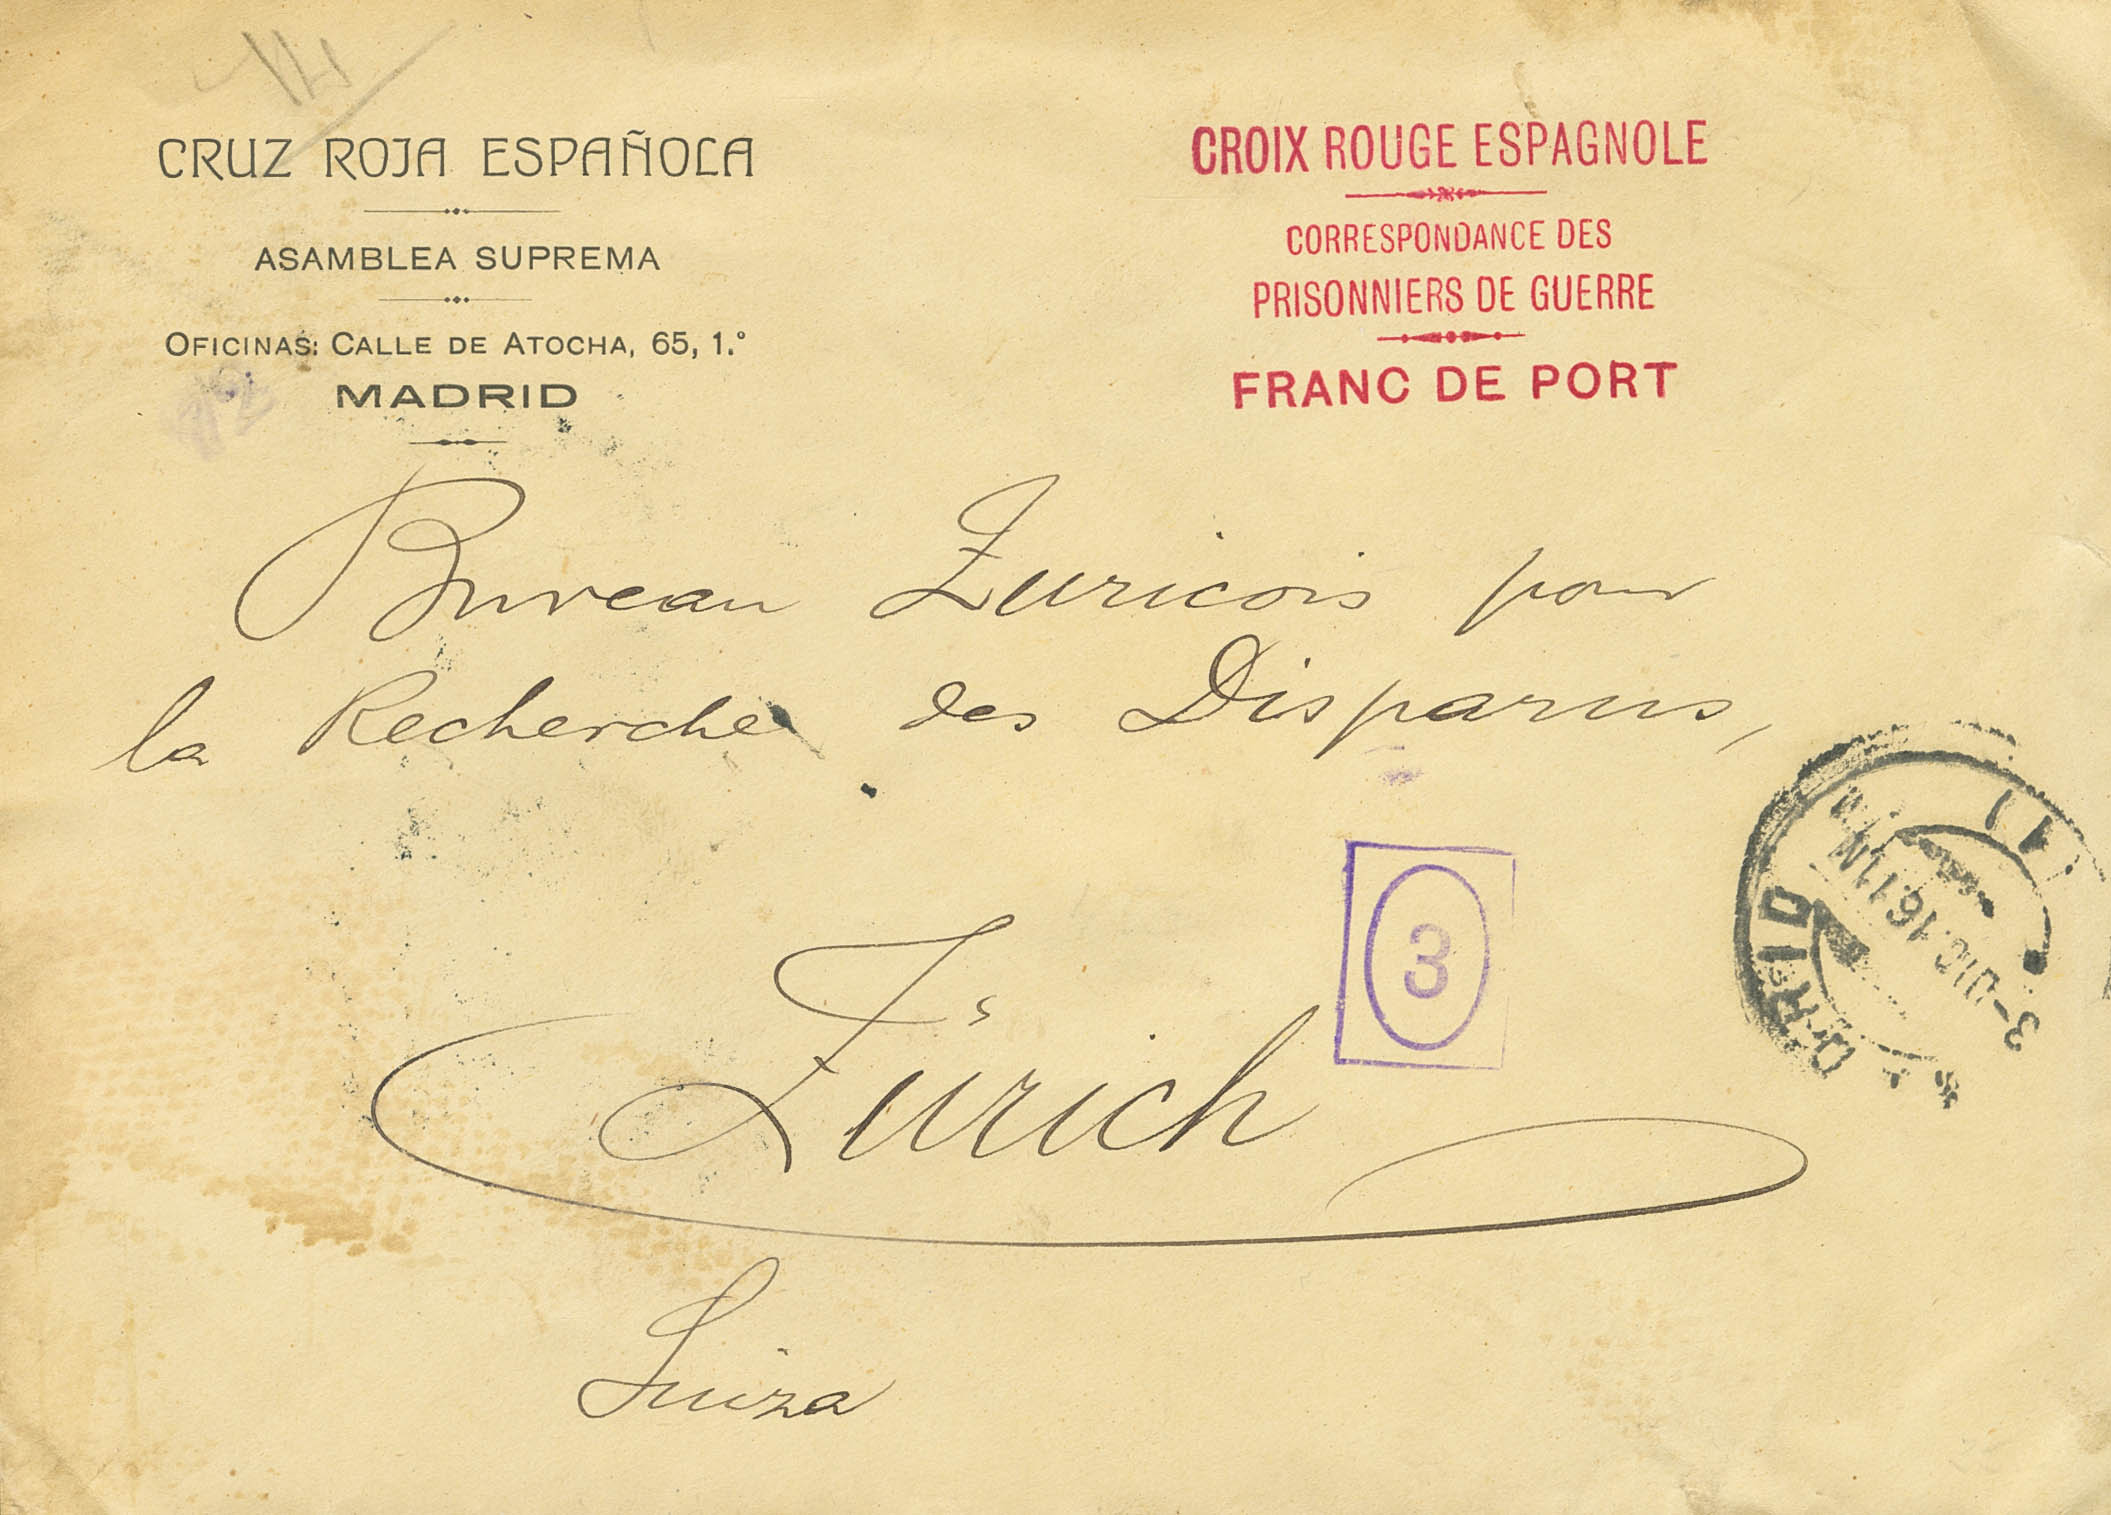 CRUZ ROJA ESPAÑOLA
ASAMBLEA SUPREMA
OFICINAS: CALLE DE ATOCHA, 65, 1.º
MADRID
CROIX ROUGE ESPAGNOLE
CORRESPONDANCE DES
PRISONNIERS DE GUERRE
FRANC DE PORT
Bureau Zuricois pour
la Recherche des Disparus,
3
Zürich
Suiza
3-DIC.16.11M